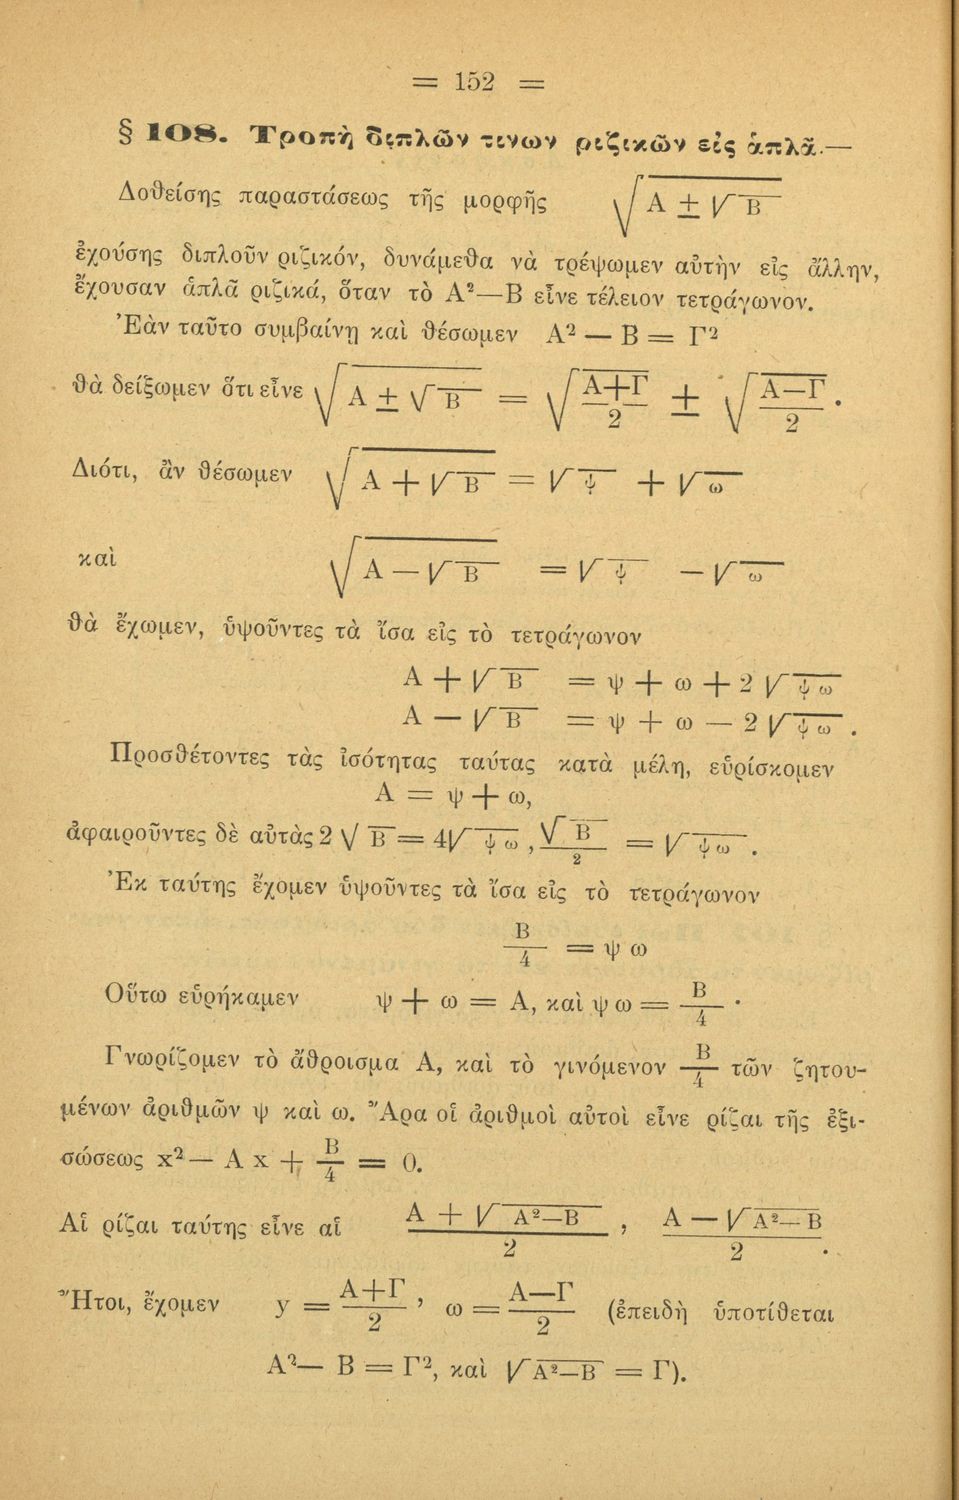 = 152 =
§ 108. Τροπὴ διπλῶν τινων ριζικῶν εἰς ἁπλᾶ.—
Δοθείσης παραστάσεως τῆς μορφῆς √(Α ± √Β)
ἐχούσης διπλοῦν ριζικόν, δυνάμεθα νὰ τρέψωμεν αὐτὴν εἰς ἄλλην,
ἔχουσαν ἁπλᾶ ριζικά, ὅταν τὸ Α²—Β εἶνε τέλειον τετράγωνον.
Ἐὰν ταῦτο συμβαίνῃ καὶ θέσωμεν Α² — Β = Γ²
θὰ δείξωμεν ὅτι εἶνε √(Α ± √Β) = √((Α+Γ)/2) ± √((Α—Γ)/2).
Διότι, ἂν θέσωμεν √(Α + √Β) = √ψ + √ω
καὶ √(Α — √Β) = √ψ — √ω
θὰ ἔχωμεν, ὑψοῦντες τὰ ἴσα εἰς τὸ τετράγωνον
Α + √Β = ψ + ω + 2 √ψω
Α — √Β = ψ + ω — 2 √ψω.
Προσθέτοντες τὰς ἰσότητας ταύτας κατὰ μέλη, εὑρίσκομεν
Α = ψ + ω,
ἀφαιροῦντες δὲ αὐτὰς 2 √Β = 4√ψω, √Β/2 = √ψω.
Ἐκ ταύτης ἔχομεν ὑψοῦντες τὰ ἴσα εἰς τὸ τετράγωνον
Β/4 = ψ ω
Οὕτω εὑρήκαμεν ψ + ω = Α, καὶ ψ ω = Β/4.
Γνωρίζομεν τὸ ἄθροισμα Α, καὶ τὸ γινόμενον Β/4 τῶν ζητου-
μένων ἀριθμῶν ψ καὶ ω. Ἄρα οἱ ἀριθμοὶ αὐτοὶ εἶνε ρίζαι τῆς ἐξι-
σώσεως x² — Α x + Β/4 = 0.
Αἱ ρίζαι ταύτης εἶνε αἱ (Α + √(Α²—Β))/2, (Α — √(Α²—Β))/2.
Ἤτοι, ἔχομεν y = (Α+Γ)/2, ω = (Α—Γ)/2 (ἐπειδὴ ὑποτίθεται
Α²— Β = Γ², καὶ √(Α²—Β) = Γ).